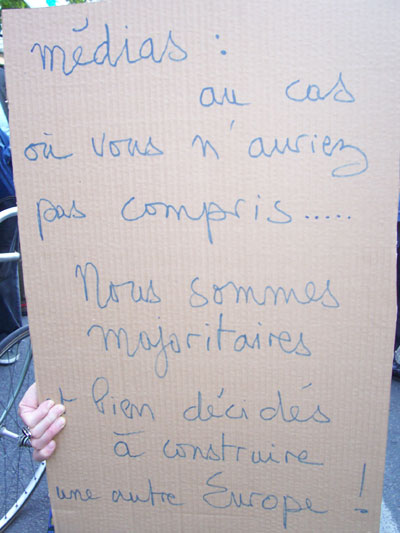 médias :
au cas
où vous n'auriez
pas compris.....
Nous sommes
majoritaires
bien décidés
à construire
une autre Europe !